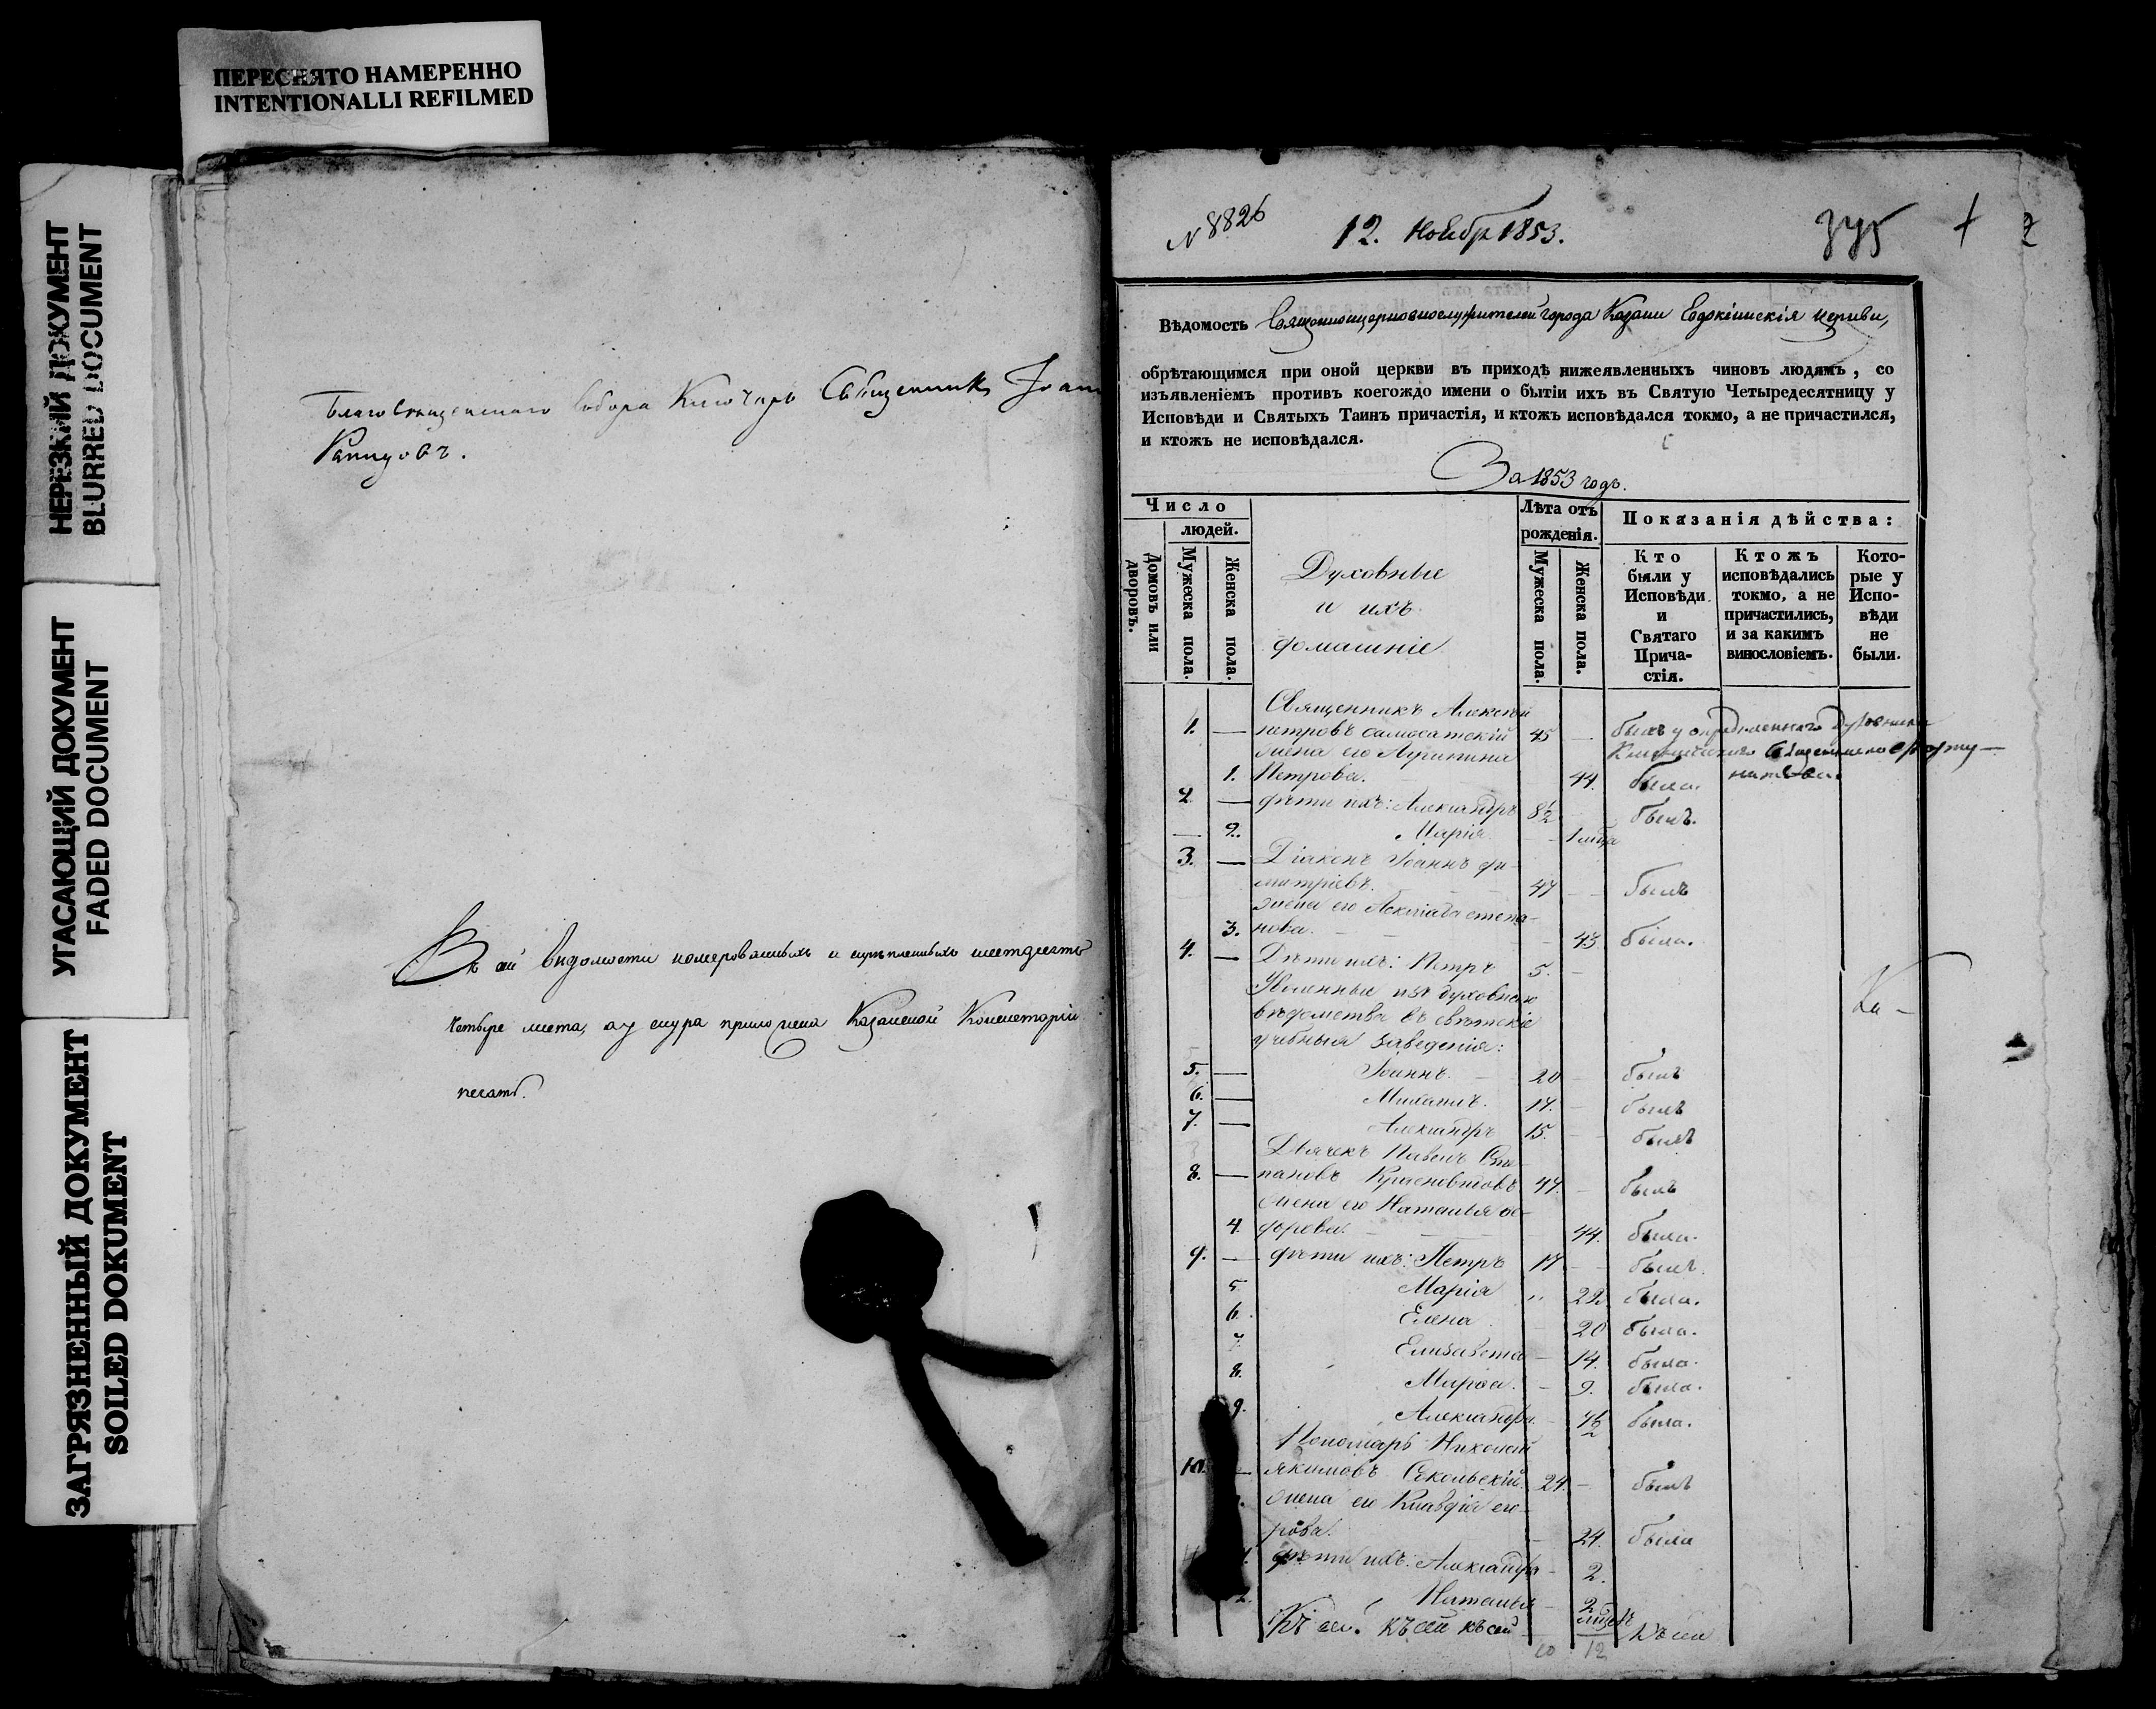 ПЕРЕСНЯТО НАМЕРЕННО
INTENTIONALLI REFILMED
НЕРЕЗКИЙ ДОКУМЕНТ
BLURRED DOCUMENT
УГАСАЮЩИЙ ДОКУМЕНТ
FADED DOCUMENT
ЗАГРЯЗНЕННЫЙ ДОКУМЕНТ
SOILED DOKUMENT
Благовѣщенскаго Собора Ключарь Священникъ Іоан
Въ сей вѣдомости номерованныхъ и скрѣпленныхъ шестдесятъ
четыре листа, а у снура приложена Казанской Консисторіи
печать.
N 8826
12. Ноябр 1853.
375
Вѣдомость Священноцерковнослужителей города Казани Евдокіинскія церкви,
обрѣтающимся при оной церкви въ приходѣ нижеявленныхъ чиновъ людямъ, со
изъявленіемъ противъ коегождо имени о бытіи ихъ въ Святую Четыредесятницу у
Исповѣди и Святыхъ Таинъ причастія, и ктожъ исповѣдался токмо, а не причастился,
и ктожъ не исповѣдался.
За 1853 годъ.
Число
людей.
Домовъ или дворовъ.
Мужеска пола.
Женска пола.
Духовные
и ихъ
домашніе
Лѣта отъ
рожденія.
Мужеска пола.
Женска пола.
Показанія дѣйства:
Кто
были у
Исповѣди
и
Святаго
Прича-
стія.
Ктожъ
исповѣдались
токмо, а не
причастились,
и за какимъ
винословіемъ.
Кото-
рые у
Испо-
вѣди
не
были.
Священникъ Алексѣй
1. — Петровъ Самосатскій 45 — былъ у опредѣленнаго Духовника
жена его Агрипина
1. Петрова. 44. была.
2. — дѣти ихъ: Александръ 8½ былъ.
— 2. Марія 1 мѣся
3. — Діаконъ Іоаннъ Ди-
митріевъ. 47 — былъ
жена его Степа-
3. нова. 43. была.
4. — Дѣти ихъ: Петръ 5. —
Уволенные изъ духовнаго
вѣдомства въ свѣтскіе
учебныя заведенія:
5. — Іоаннъ. 20 былъ
6. — Михаилъ. 17. былъ
7. — Александръ 15. былъ
Дьячекъ Павелъ Сте-
8. — пановъ 47. былъ
жена его Наталья Ѳе-
4. дорова. 44. была.
9. — дѣти ихъ: Петръ 17 — былъ.
5. Марія 22. была.
6. Елена 20 была.
7. Елизавета — 14. была.
8. Марѳа. — 9. была.
9. Александра. была.
Пономарь Николай
10. — Якимовъ Сокольскій. 24. — былъ
жена его Клавдія его-
рова. 24. была
дѣти ихъ: Александра — 2.
2. Наталья — 2
Къ сей. Къ сей къ сей
10 12